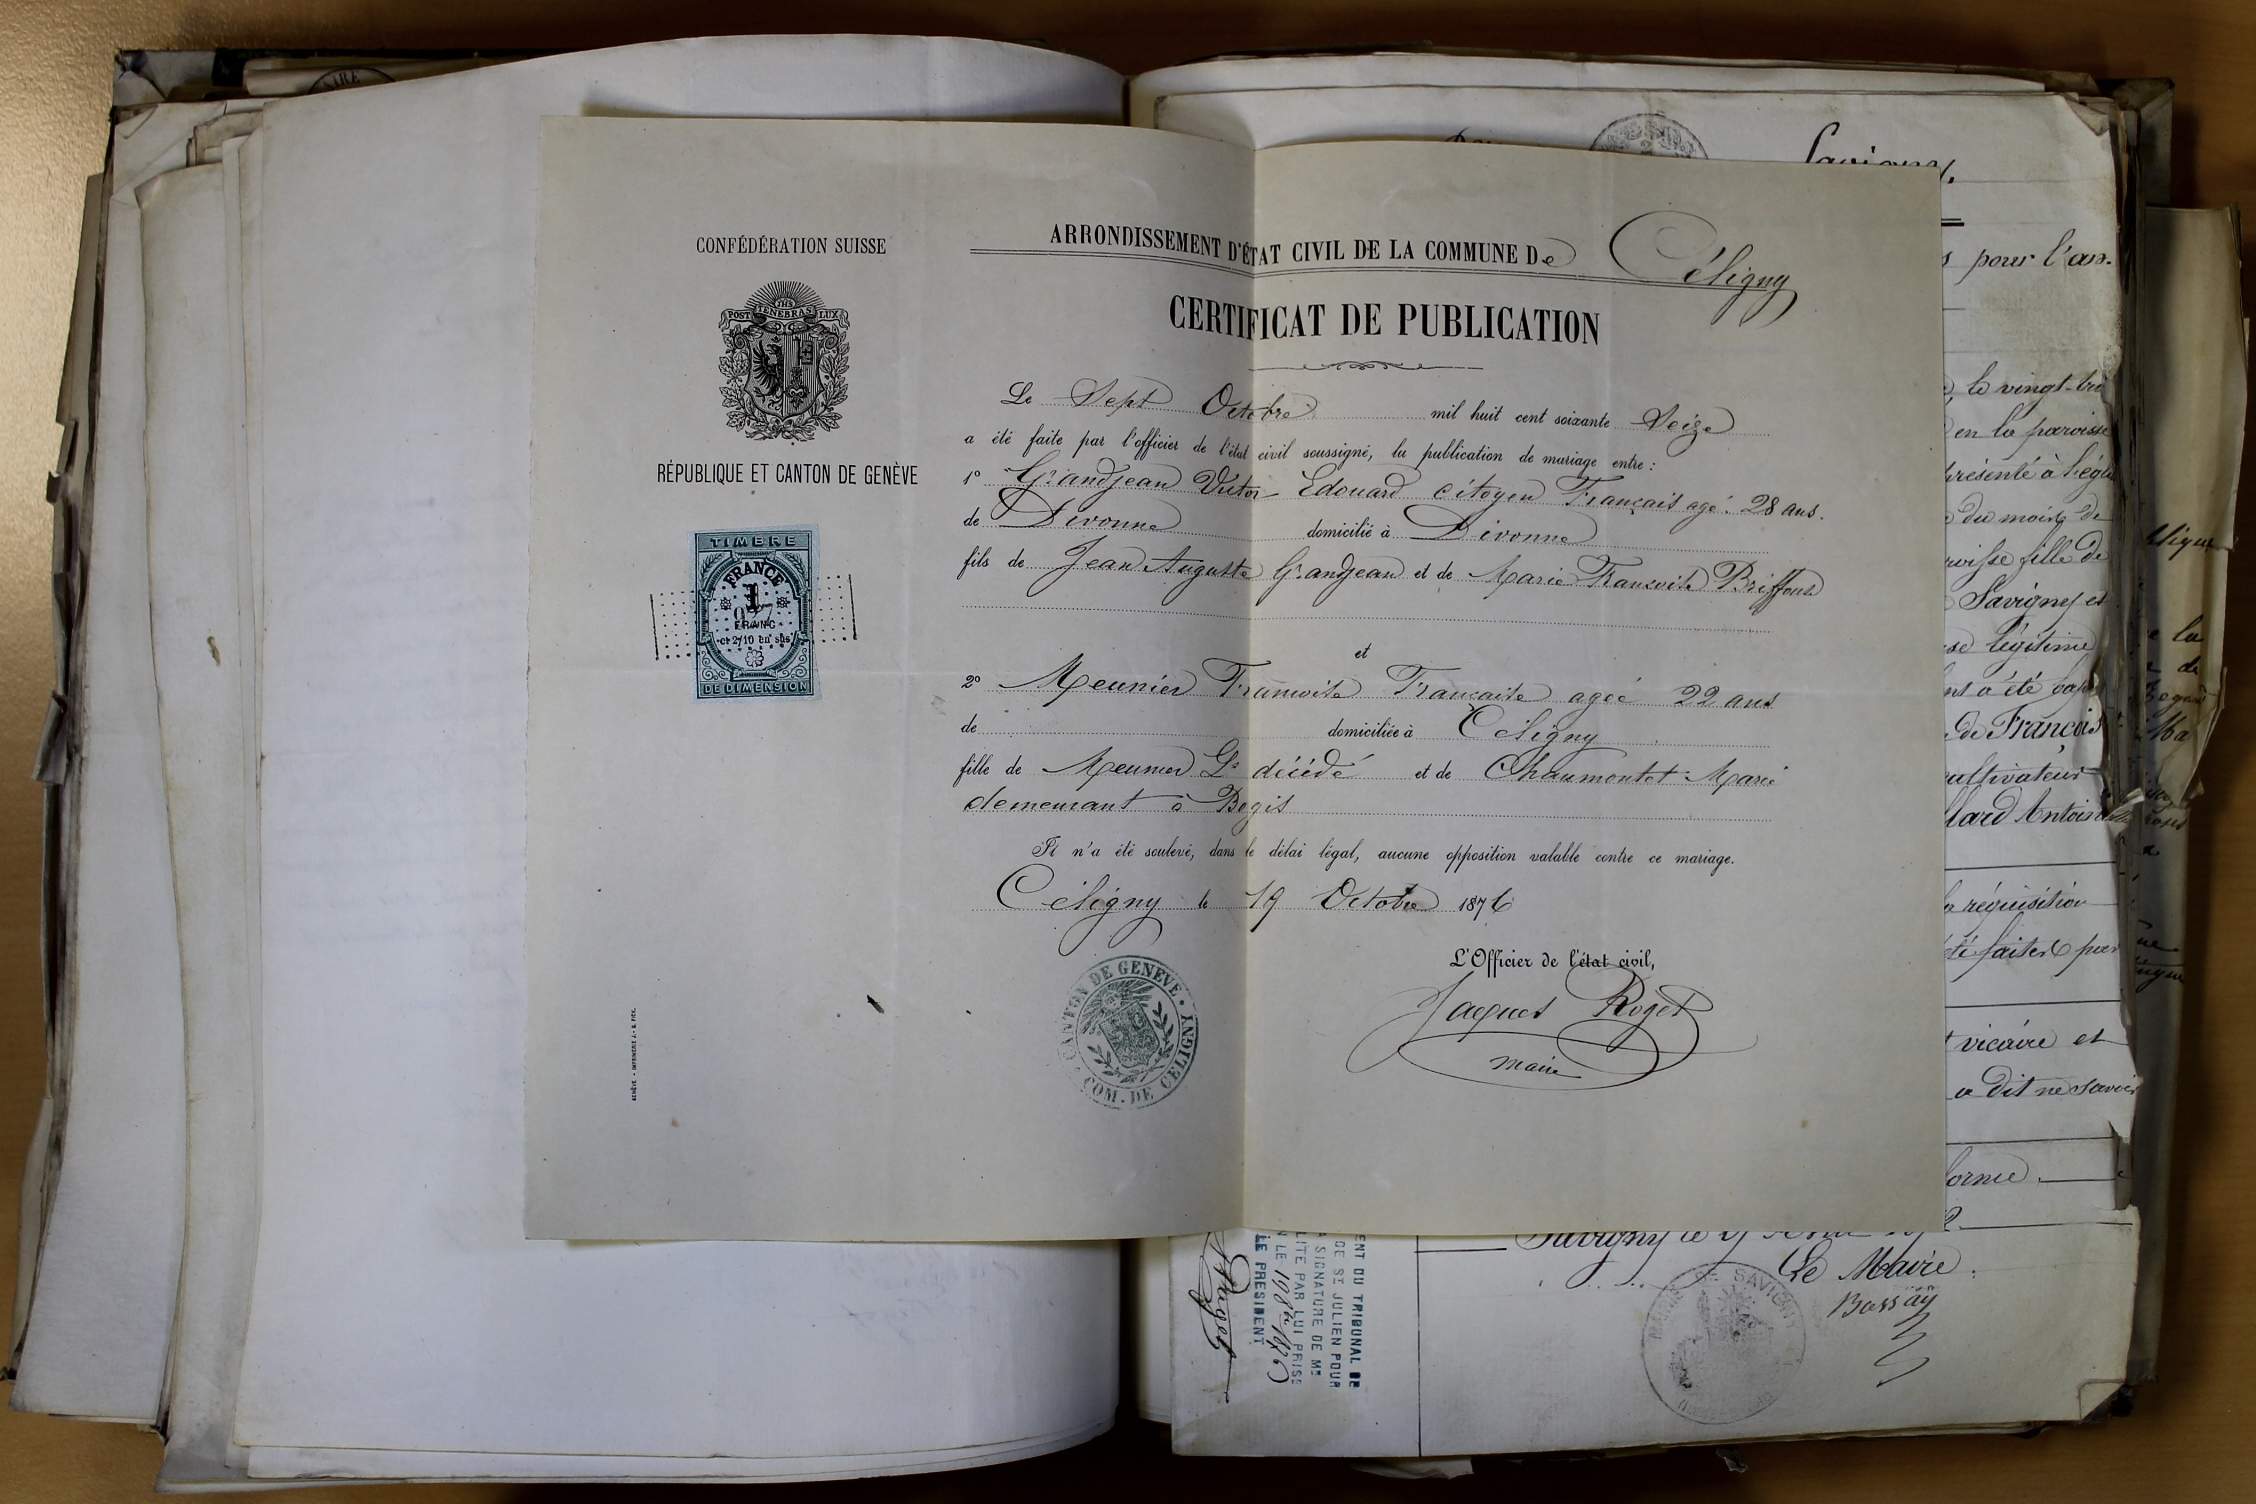 CONFÉDÉRATION SUISSE
JHS
POST TENEBRAS LUX
RÉPUBLIQUE ET CANTON DE GENÈVE
TIMBRE
FRANCE
1
FRANC
et 2/10 en sus
DE DIMENSION
GENÈVE - IMPRIMERIE J.-G. FICK.
ARRONDISSEMENT D'ÉTAT CIVIL DE LA COMMUNE De Céligny
CERTIFICAT DE PUBLICATION
Le Sept Octobre mil huit cent soixante Seize
a été faite par l'officier de l'état civil soussigné, la publication de mariage entre :
1º Grandjean Victor Edouard citoyen Français agé. 28 ans.
de Divonne domicilié à Divonne
fils de Jean Auguste Grandjean et de Marie Francoise Briffoud
et
2º Meunier Francoise Française agée 22 ans
de domiciliée à Céligny
fille de Meunier Ls décédé et de Chaumontet Marie
demeurant à Bogis
Il n'a été soulevé, dans le délai légal, aucune opposition valable contre ce mariage.
Céligny le 19 Octobre 1876
L'Officier de l'état civil,
Jaques Roget
maire
CANTON DE GENEVE
COM. DE CELIGNY
Savigny,
pour l'an-
le vingt-
en la paroisse
présenté à l'égl
du mois de
fille de
Savigny et
légitime
a été bap
de François
cultivateur
Antoine
réquisition
faites par
vicaire et
a dit ne savoir
Le Maire
Bassay
SAVIGNY
ENT DU TRIBUNAL DE
CE ST JULIEN POUR
A SIGNATURE DE MR
LITÉ PAR LUI PRISE
N LE 19 8bre 1876
LE PRESIDENT